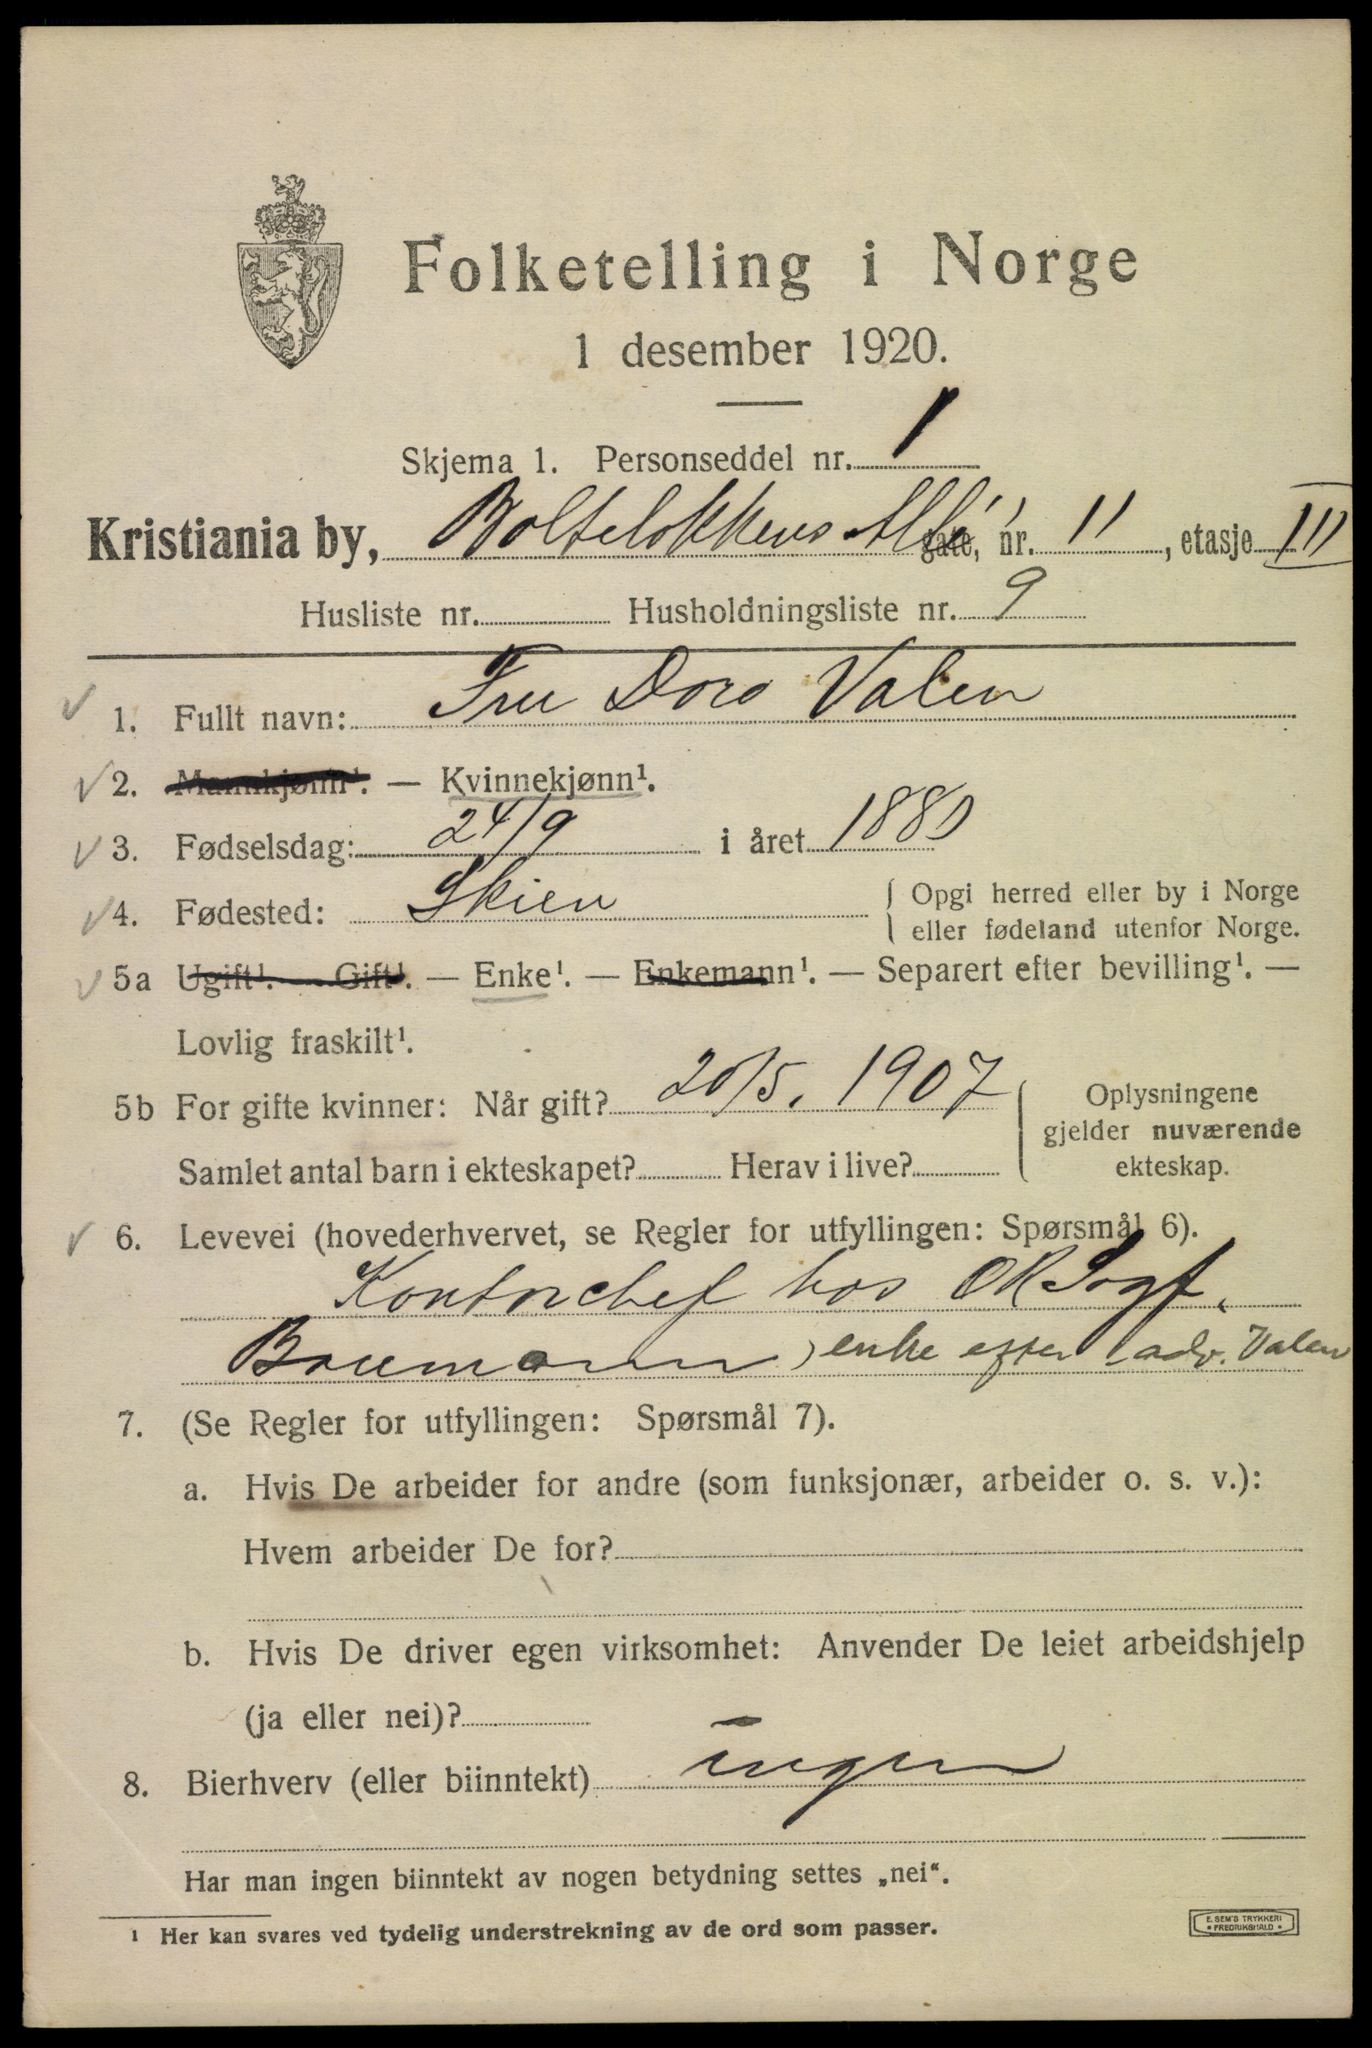 Folketelling i Norge
1 desember 1920.
Skjema 1. Personseddel nr. 1
Kristiania by, Boltelokkens Allé gate, nr. 11, etasje III
Husliste nr. Husholdningsliste nr. 9
1. Fullt navn: Fru Dora Valen
2. Mannkjønn¹. — Kvinnekjønn¹.
3. Fødselsdag: 24/9 i året 1880
4. Fødested: Skien { Opgi herred eller by i Norge
eller fødeland utenfor Norge.
5a Ugift¹. — Gift¹. — Enke¹. — Enkemann¹. — Separert efter bevilling¹. —
Lovlig fraskilt¹.
5b For gifte kvinner: Når gift? 20/5. 1907
Samlet antal barn i ekteskapet? Herav i live?
Oplysningene
gjelder nuværende
ekteskap.
6. Levevei (hovederhvervet, se Regler for utfyllingen: Spørsmål 6).
Kontorchef hos OR Sagf.
enke efter adv. Valen
7. (Se Regler for utfyllingen: Spørsmål 7).
a. Hvis De arbeider for andre (som funksjonær, arbeider o. s. v.):
Hvem arbeider De for?
b. Hvis De driver egen virksomhet: Anvender De leiet arbeidshjelp
(ja eller nei)?
8. Bierhverv (eller biinntekt) ingen
Har man ingen biinntekt av nogen betydning settes „nei“.
¹ Her kan svares ved tydelig understrekning av de ord som passer.
E. SEM'S TRYKKERI
FREDRIKSHALD